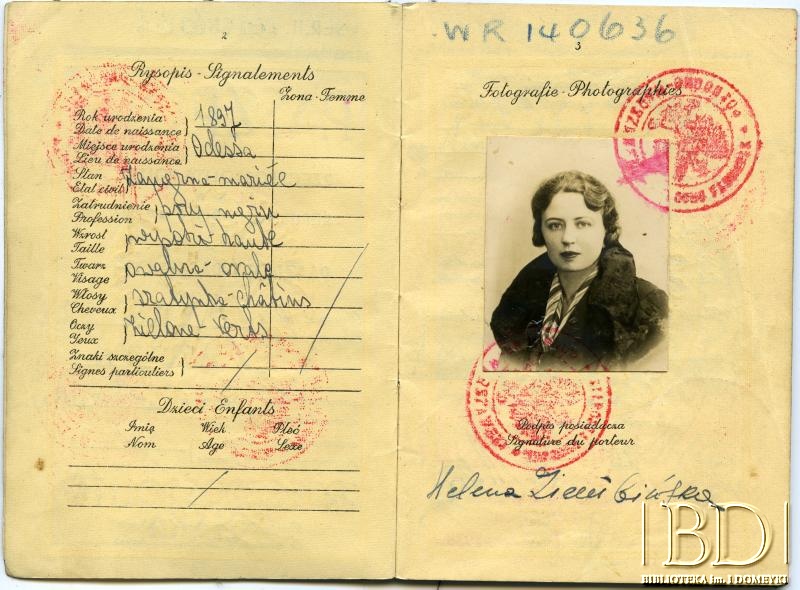 2
Rysopis - Signalements
Żona - Femme
Rok urodzenia
Date de naissance
1897
Miejsce urodzenia
Lieu de naissance
Odessa
Stan
Etat civil
mariée
Zatrudnienie
Profession
przy mężu
Wzrost
Taille
wysoki haute
Twarz
Visage
owalna - ovale
Włosy
Cheveux
szatynka - châtins
Oczy
Yeux
Zielone - Verts
Znaki szczególne
Signes particuliers
Dzieci - Enfants
Imię Wiek Płeć
Nom Age Sexe
WR 140636
3
Fotografie - Photographies
Podpis posiadacza
Signature du porteur
Helena
BD
BIBLIOTEKA im. I DOMEYKI